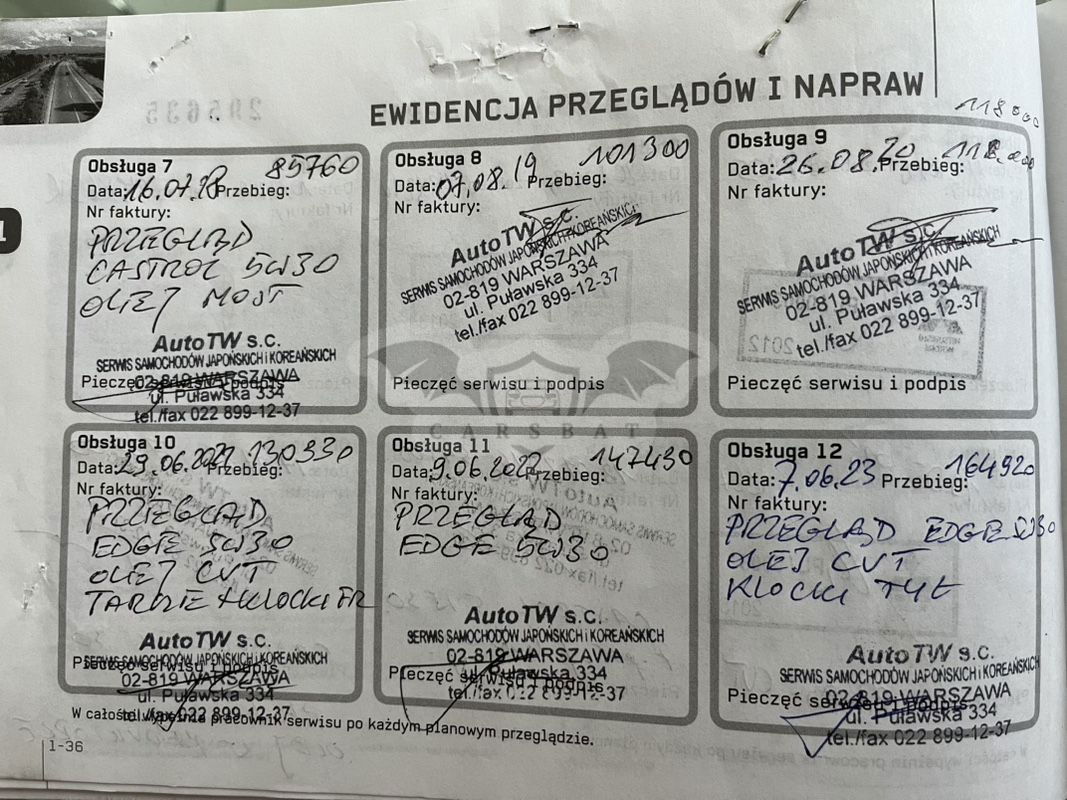 EWIDENCJA PRZEGLĄDÓW I NAPRAW
118000
Obsługa 7 85760
Data: 16.07.18 Przebieg:
Nr faktury:
PRZEGLĄD
CASTROL 5W30
OLEJ MOST
AutoTW s.c.
SERWIS SAMOCHODÓW JAPOŃSKICH i KOREAŃSKICH
Pieczęć serwisu i podpis
02-819 WARSZAWA
ul. Puławska 334
tel./fax 022 899-12-37
Obsługa 8 101300
Data: 07.08.19 Przebieg:
Nr faktury:
AutoTW s.c.
SERWIS SAMOCHODÓW JAPOŃSKICH i KOREAŃSKICH
02-819 WARSZAWA
ul. Puławska 334
tel./fax 022 899-12-37
Pieczęć serwisu i podpis
Obsługa 9
Data: 26.08.20 Przebieg:
Nr faktury:
AutoTW s.c.
SERWIS SAMOCHODÓW JAPOŃSKICH i KOREAŃSKICH
02-819 WARSZAWA
ul. Puławska 334
tel./fax 022 899-12-37
Pieczęć serwisu i podpis
CARSBAT
Obsługa 10
Data: 29.06.2021 Przebieg: 130330
Nr faktury:
PRZEGLĄD
EDGE 5W30
OLEJ CVT
TARCZE + KLOCKI FR
AutoTW s.c.
SERWIS SAMOCHODÓW JAPOŃSKICH i KOREAŃSKICH
Pieczęć serwisu i podpis
02-819 WARSZAWA
ul. Puławska 334
tel./fax 022 899-12-37
Obsługa 11
Data: 9.06.2022 Przebieg: 147430
Nr faktury:
PRZEGLĄD
EDGE 5W30
AutoTW s.c.
SERWIS SAMOCHODÓW JAPOŃSKICH i KOREAŃSKICH
02-819 WARSZAWA
Pieczęć serwisu i podpis
ul. Puławska 334
tel./fax 022 899-12-37
Obsługa 12
Data: 7.06.23 Przebieg: 164920
Nr faktury:
PRZEGLĄD EDGE 5W30
OLEJ CVT
KLOCKI TYŁ
AutoTW s.c.
SERWIS SAMOCHODÓW JAPOŃSKICH i KOREAŃSKICH
Pieczęć serwisu i podpis
02-819 WARSZAWA
ul. Puławska 334
tel./fax 022 899-12-37
W całości wypełnia pracownik serwisu po każdym planowym przeglądzie.
1-36